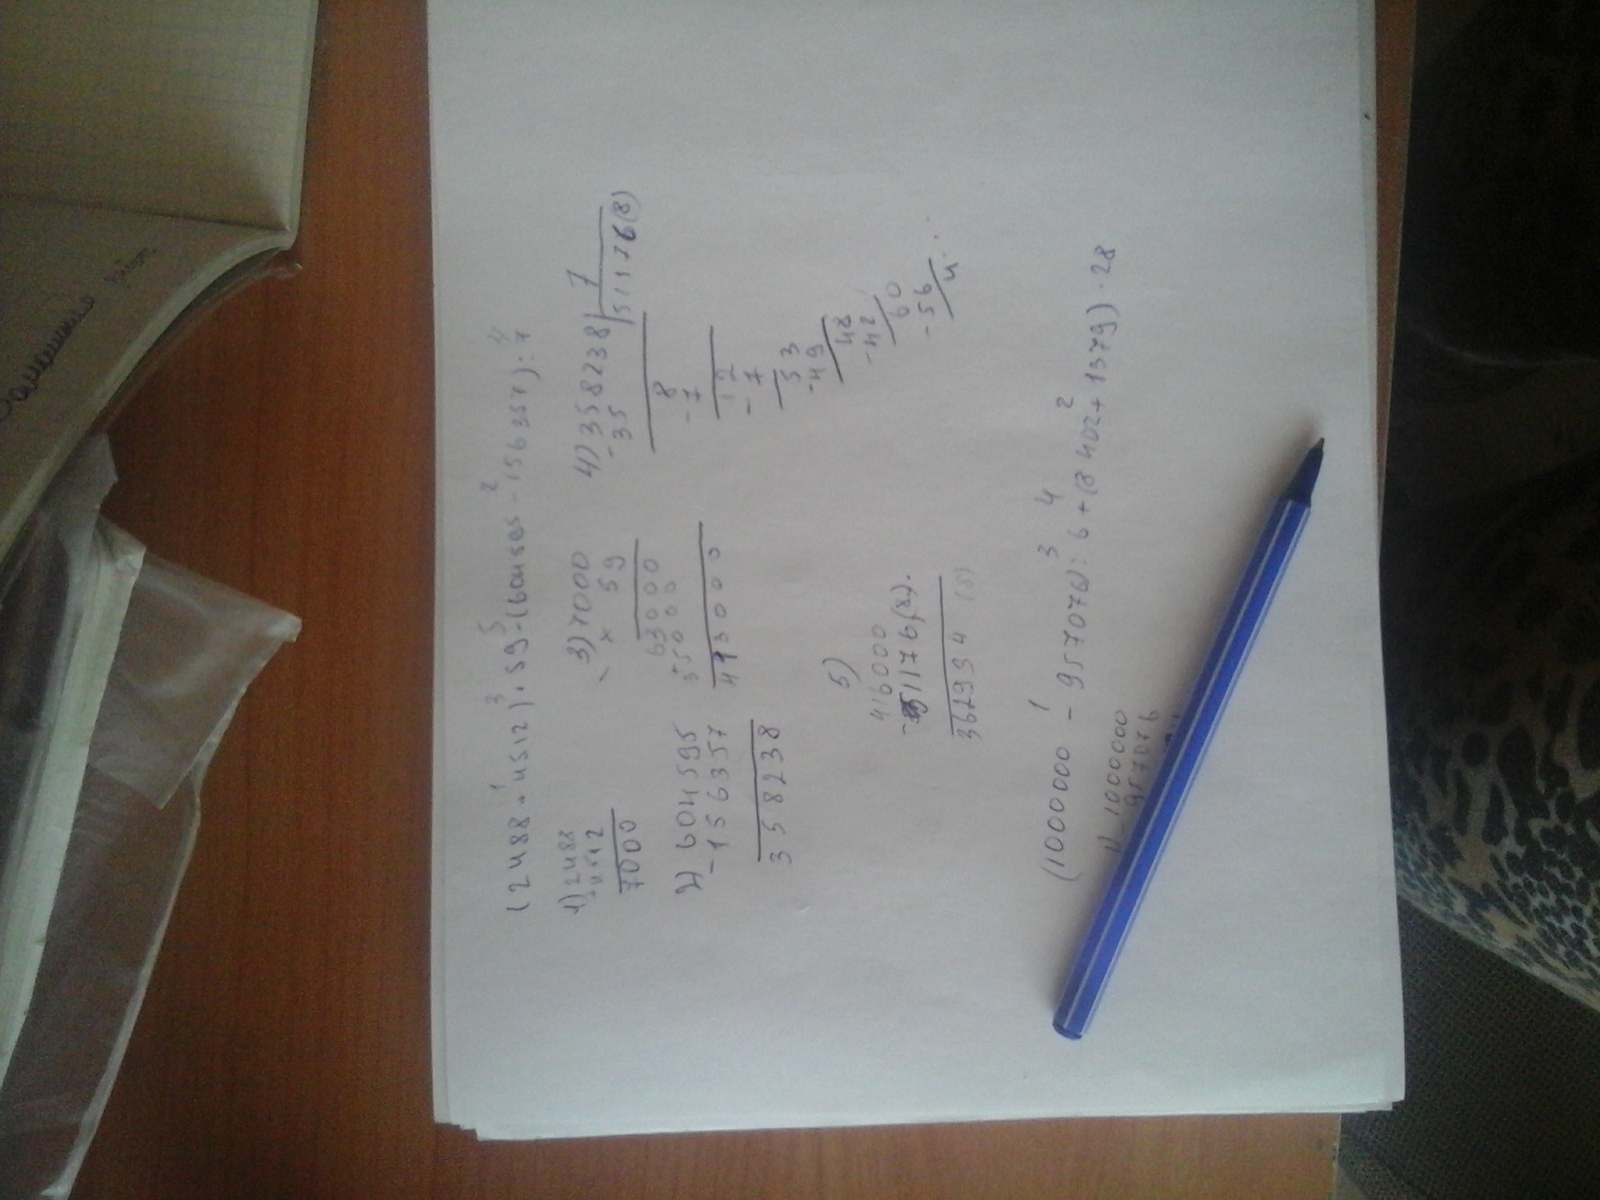 (2488+4512)·59-(604595-156357):7
1) 2488
4512
7000
2) 604595
-156357
358238
3) 7000
× 59
63000
35000
413000
4) 358238 | 7
-35 51176(8)
8
-7
12
-7
53
-49
48
-42
60
-56
4
5)
416000
-51176(8).
362934 (8)
(1000000 - 957076):6+(8402+1379)·28
1) -1000000
957076